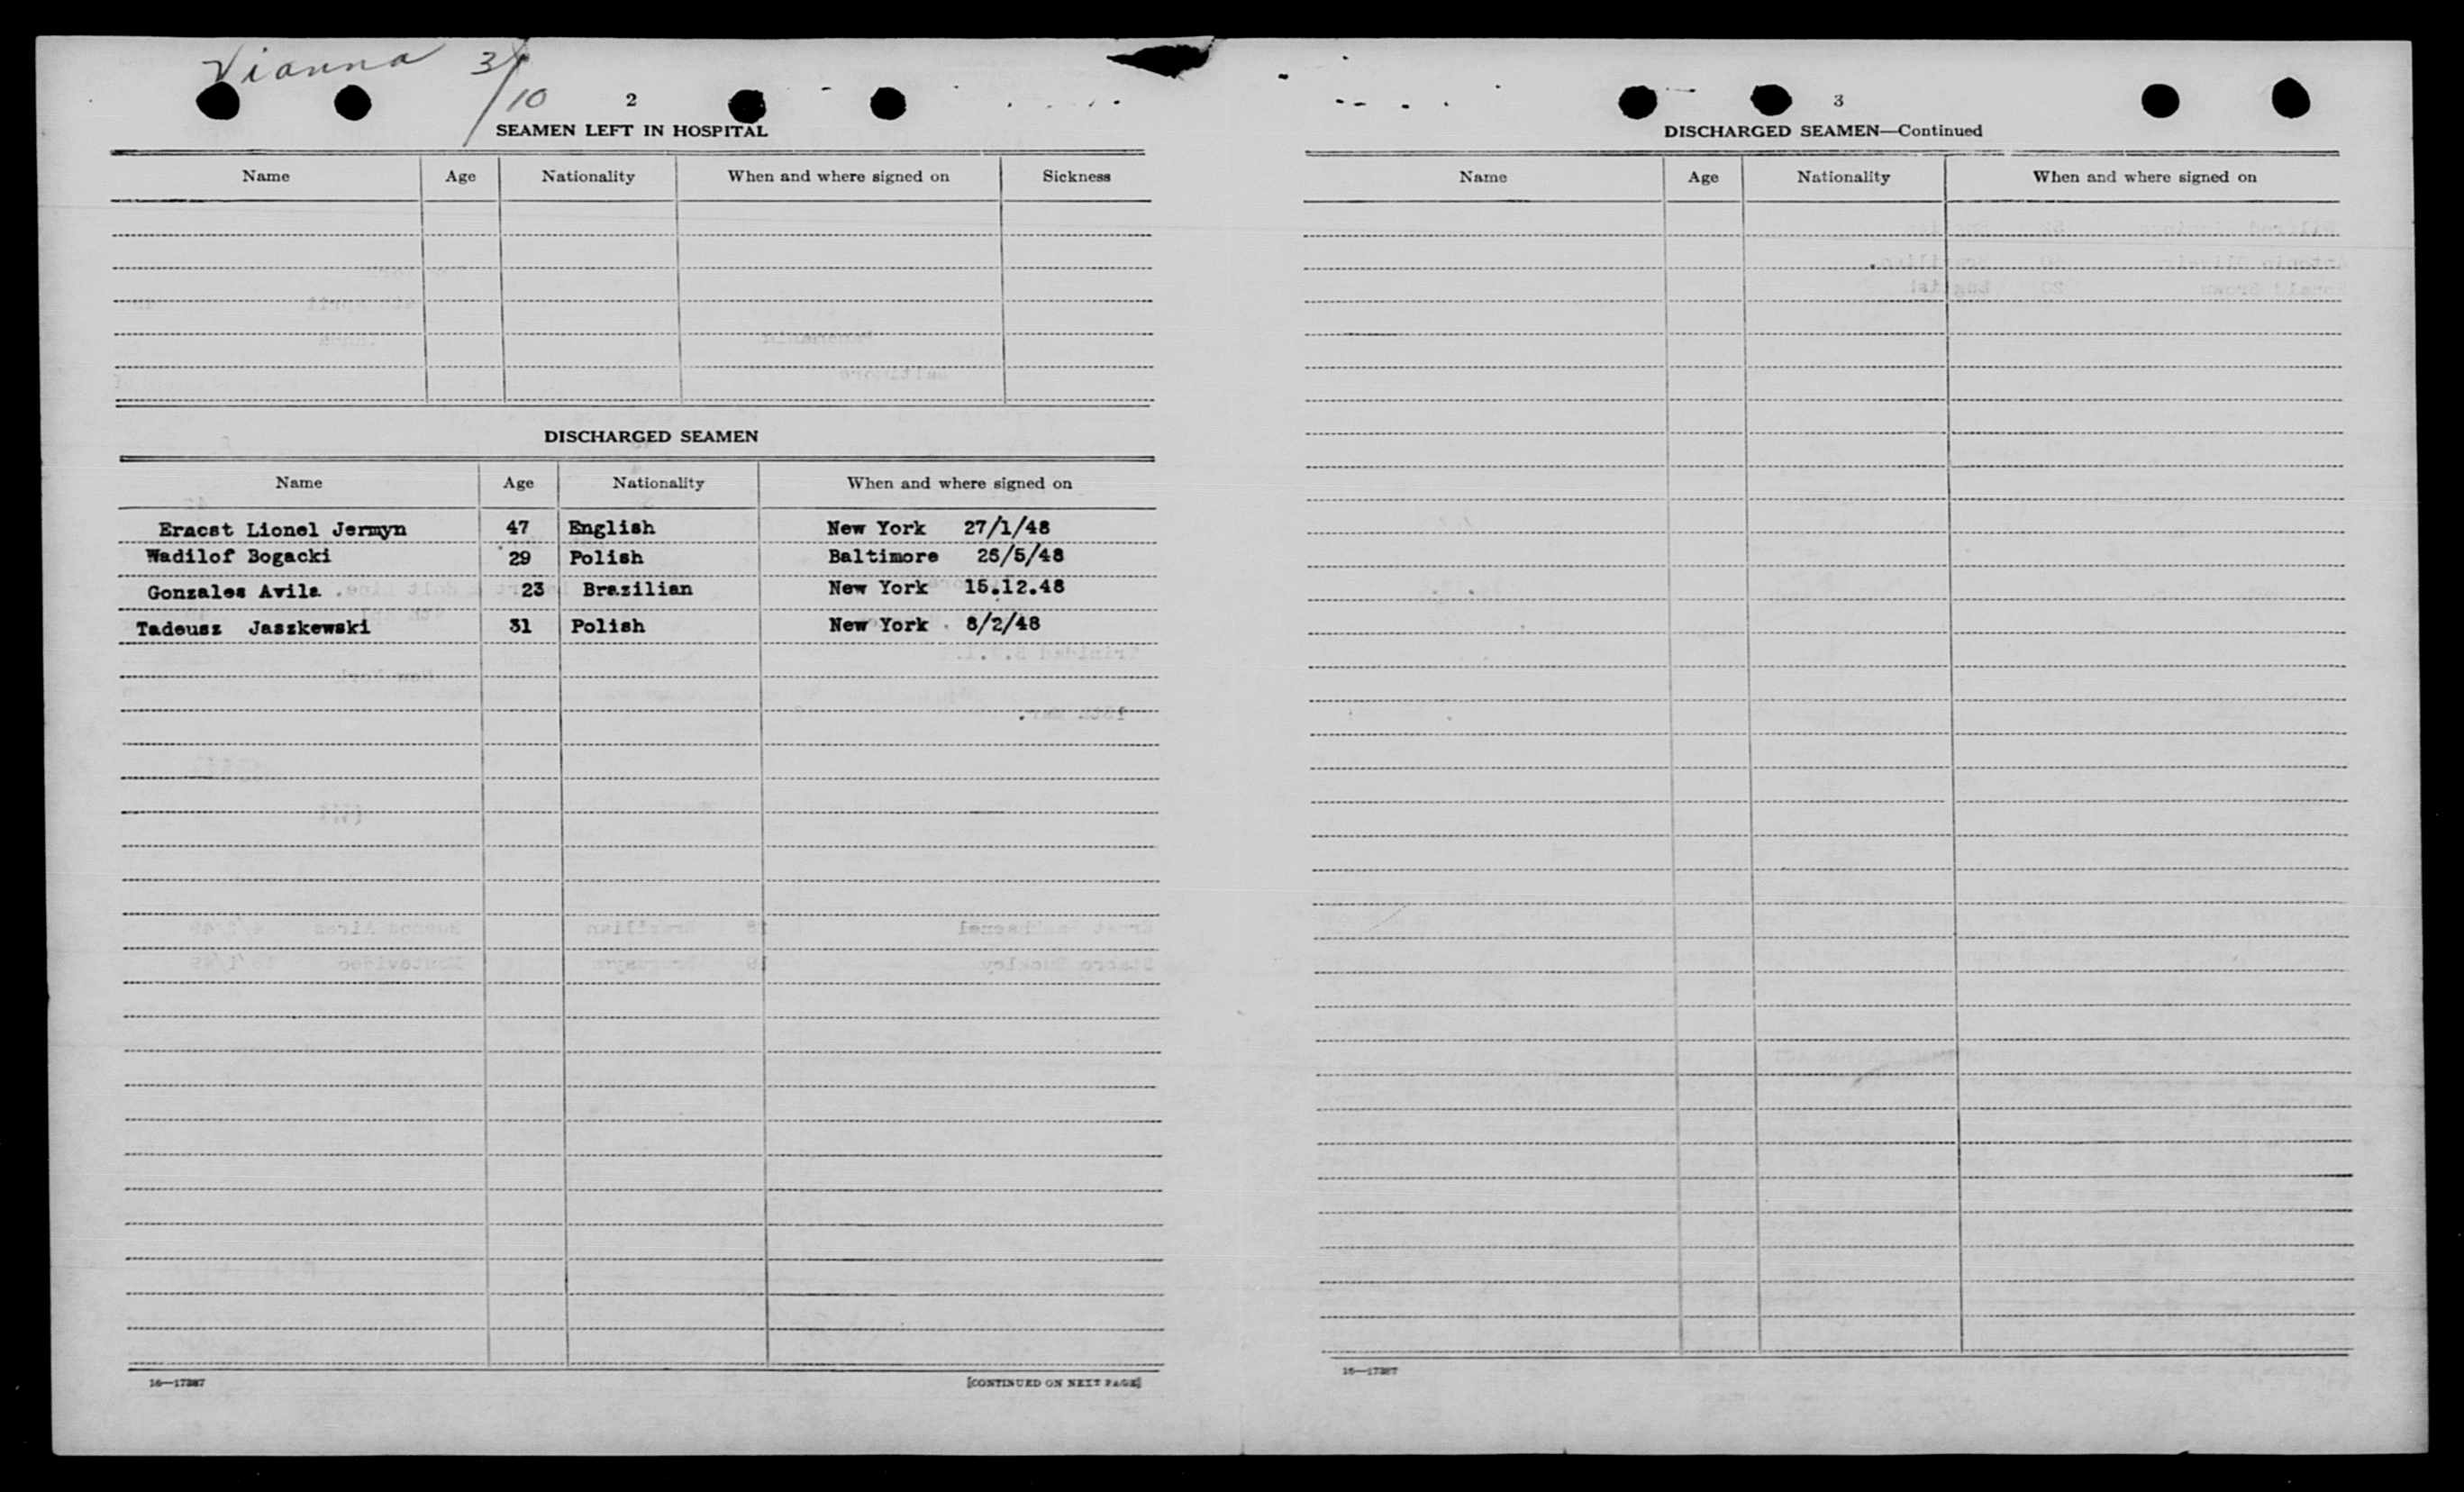 Vianna 3/10
2
SEAMEN LEFT IN HOSPITAL
Name Age Nationality When and where signed on Sickness
DISCHARGED SEAMEN
Name Age Nationality When and where signed on
Eracst Lionel Jermyn 47 English New York 27/1/48
Wadilof Bogacki 29 Polish Baltimore 26/5/48
Gonzales Avila 23 Brazilian New York 15.12.48
Tadeusz Jaszkewski 31 Polish New York 8/2/48
16—17387
[CONTINUED ON NEXT PAGE]
3
DISCHARGED SEAMEN—Continued
Name Age Nationality When and where signed on
16—17387